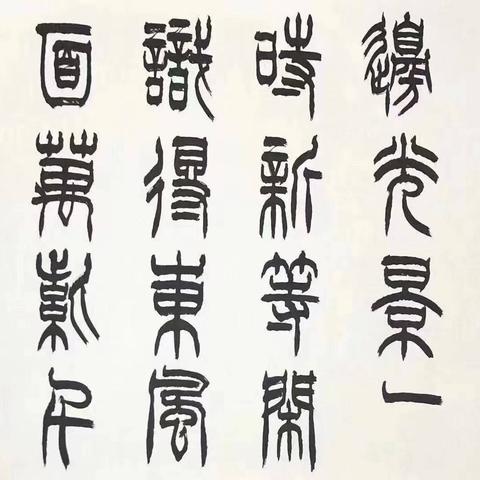 邊光景一
時新等閑
識得東風
面萬紫千